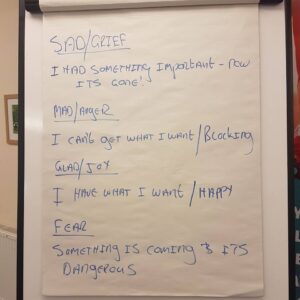 SAD/GRIEF
I HAD SOMETHING IMPORTANT - NOW
ITS GONE!
MAD/ANGER
I CAN'T GET WHAT I WANT/Blocking
GLAD/JOY
I HAVE WHAT I WANT/HAPPY
FEAR
SOMETHING IS COMING & ITS
DANGEROUS